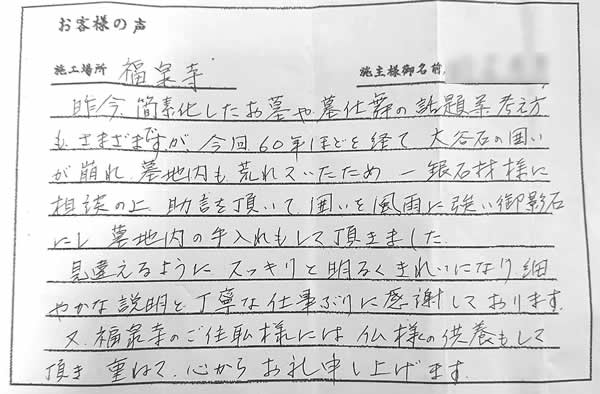 お客様の声
施工場所 福泉寺 施主様御名前
昨今、簡素化したお墓や墓仕舞の話題等、考え方
も、さまざまですが、今回60年ほどを経て 大谷石の囲い
が崩れ、墓地内も荒れていたため 一銀石材様に
相談の上、助言を頂いて 囲いを風雨に強い御影石
にし 墓地内の手入れもして頂きました
見違えるように スッキリと明るくきれいになり 細
やかな説明と丁寧な仕事ぶりに感謝しております。
又、福泉寺のご住職様には 仏様の供養もして
頂き 重ねて、心から お礼申し上げます。